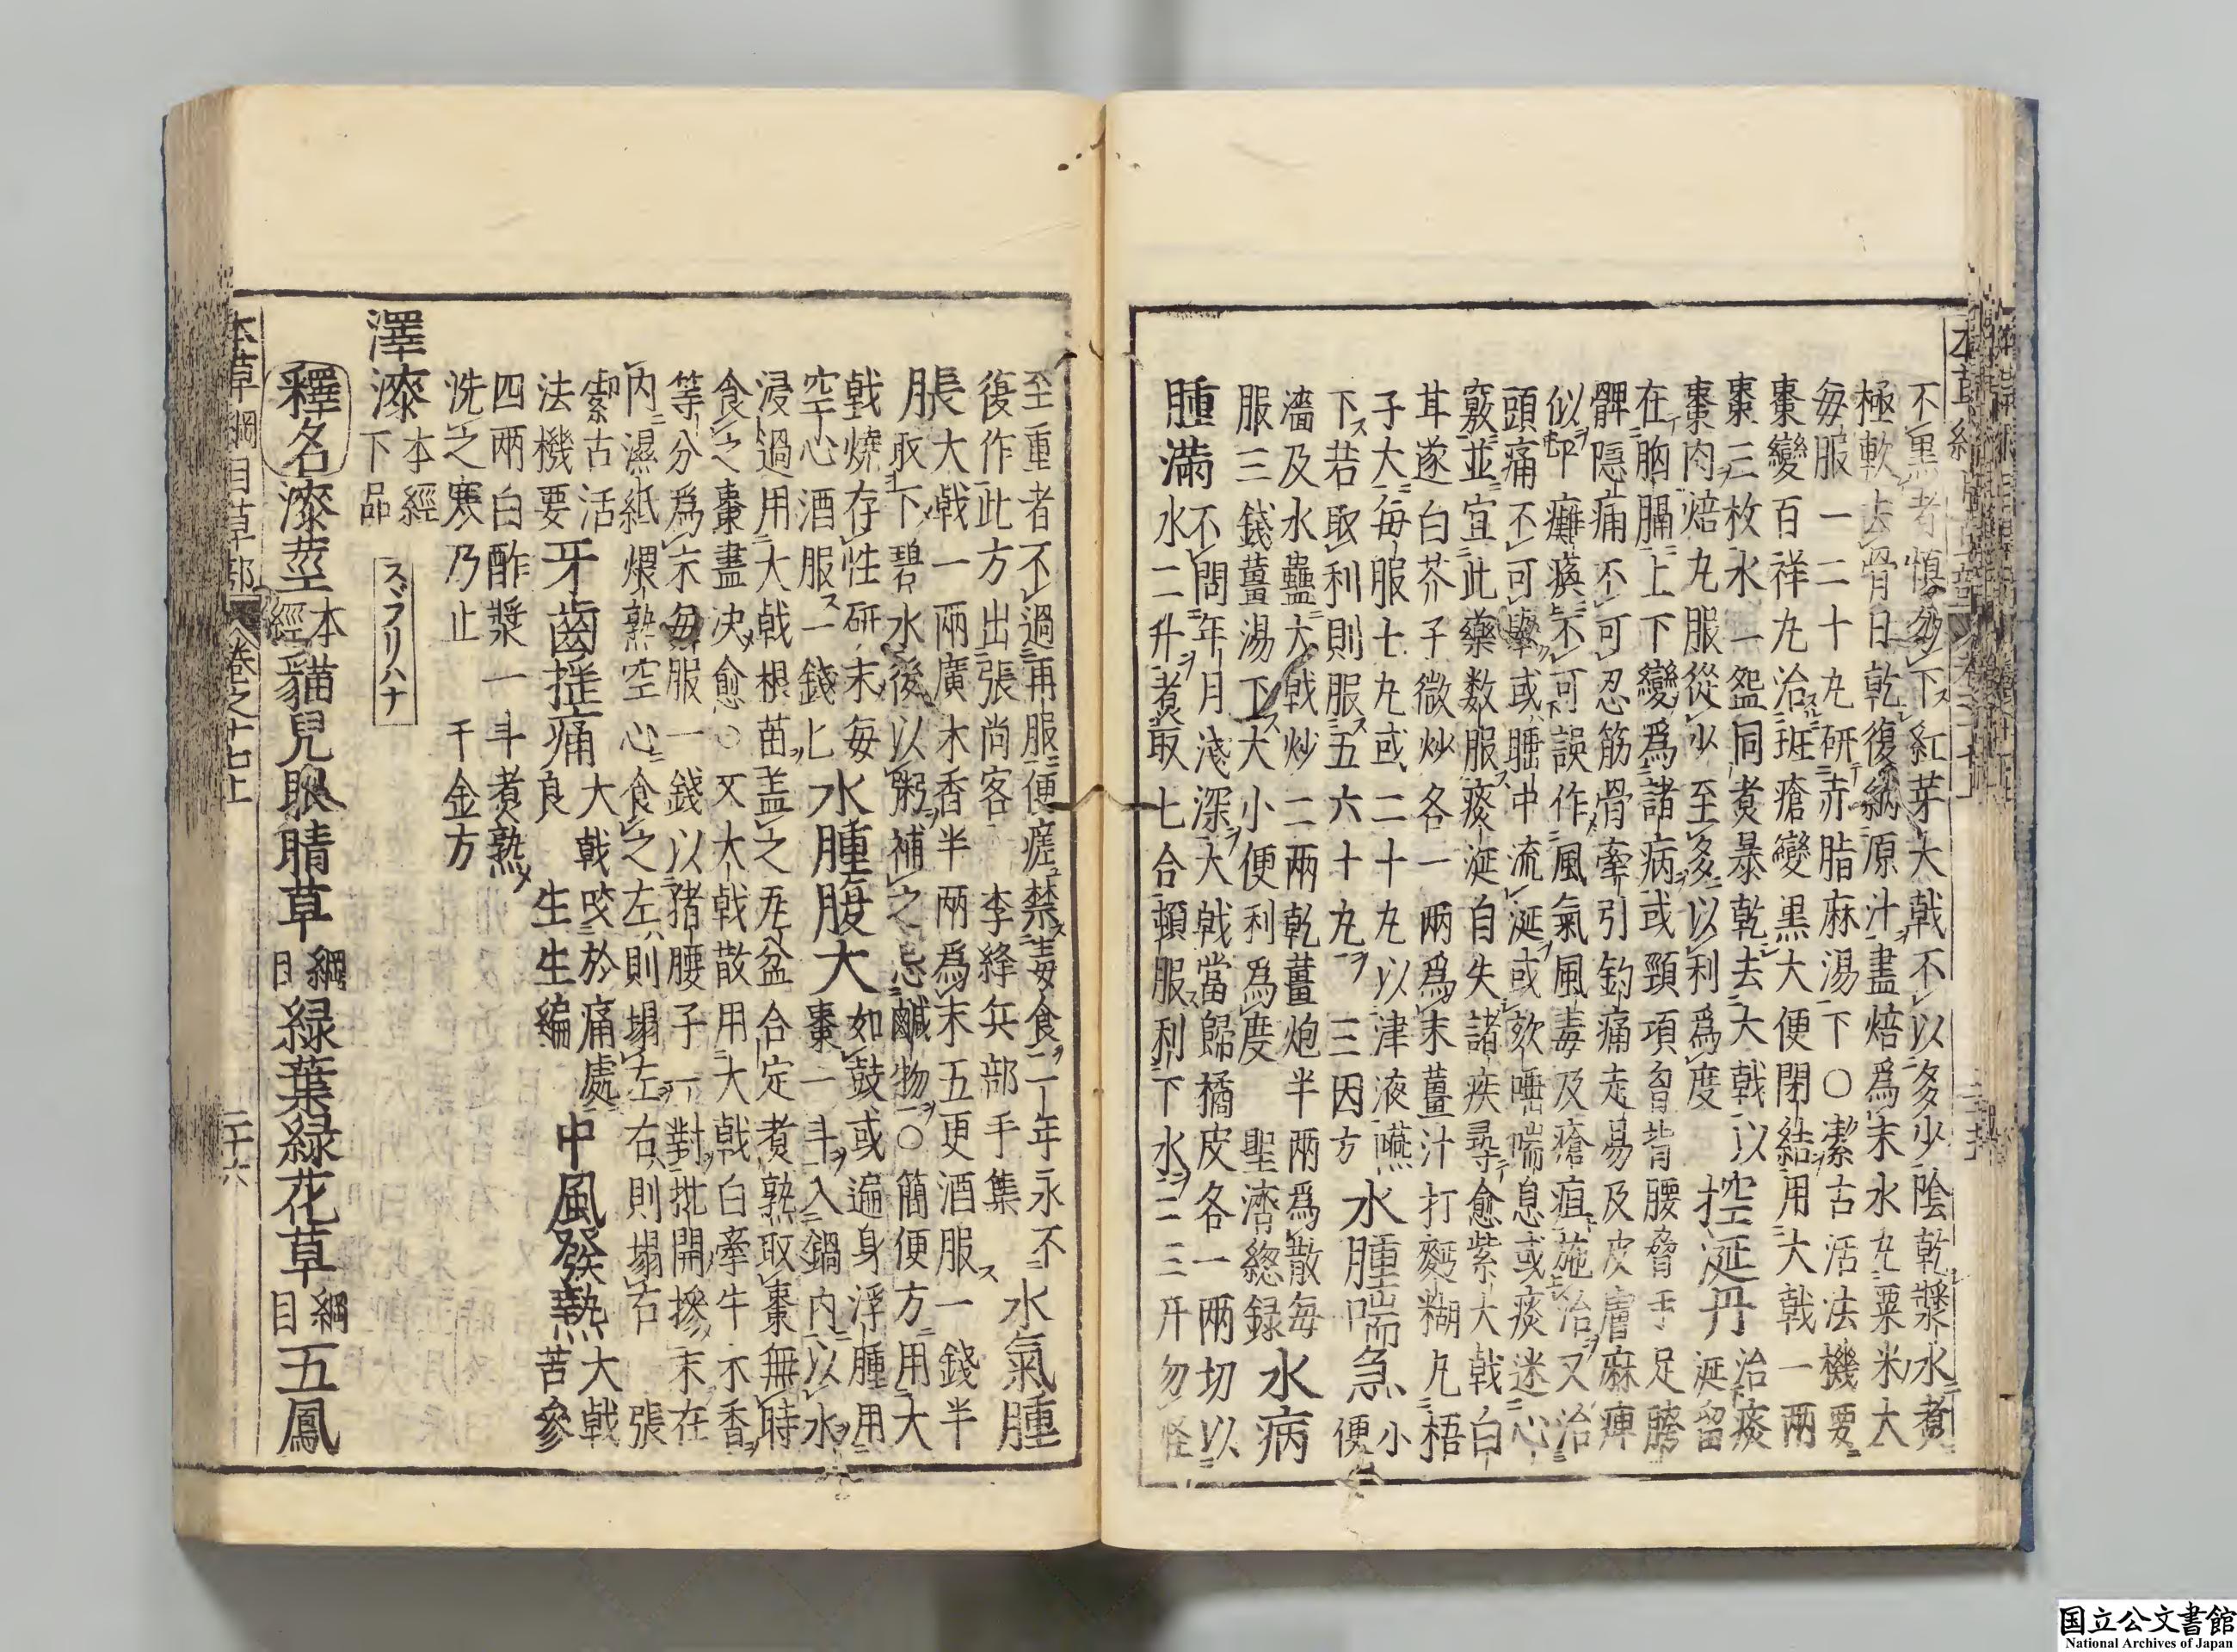 不黒者慎勿下紅芽大戟不以多少陰乾漿水煮
極軟去骨日乾復納原汁盡焙爲末水丸粟米大
每服一二十丸研赤脂麻湯下〇潔古活法機要
棗變百祥丸治班瘡變黒大便閉結用大戟一兩
棗三枚水一盌同煮暴乾去大戟以
棗肉焙丸服從少至多以利爲度 控涎丹 治痰涎留
在胸膈上下變爲諸病或頸項胷背腰脅手足胯
髀隱痛不可忍筋骨牽引釣痛走易及皮膚麻痺
似乎癱瘓不可誤作風氣風毒及瘡疽施治又治
頭痛不可擧或睡中流涎或欬唾喘息或痰迷心
竅並宜此藥数服痰涎自失諸疾尋愈紫大戟白
芥子微炒各一兩爲末薑汁打麪糊丸梧
子大每服七丸或二十丸以津液嚥
下若取利則服五六十丸 三因方 水腫喘急 小便
濇及水蠱大戟炒二兩乾薑炮半兩爲散每
服三錢薑湯下大小便利爲度 聖濟総録 水病
腫滿 不問年月淺深大戟當歸橘皮各一兩切以
水二升煮取七合頓服利下水二三升勿怪
至重者不過再服便瘥禁毒食一年永不
復作此方出張尚客 李絳兵部手集 水氣腫
脹 大戟一兩廣木香半兩爲末五更酒服一錢半
取下碧水後以粥補之忌鹹物〇簡便方用大
戟燒存性研末每
空心酒服一錢匕 水腫腹大 如鼓或遍身浮腫用
棗一斗入鍋内以水
浸過用大戟根苗蓋之瓦盆合定煮熟取棗無時
食之棗盡决愈〇又大戟散用大戟白牽牛木香
等分爲末每服一錢以猪腰子一對批開摻末在
内濕紙煨熟空心食之左則塌左右則塌右 張
潔古活
法機要 牙齒揺痛 大戟咬於痛處良 生生編 中風發熱 大戟苦參
四兩白酢漿一斗煮熟
洗之寒乃止 千金方
澤漆 本經下品 スヾフリハナ
釋名 漆莖 本經 貓兒眼睛草 綱目 緑葉緑花草 綱目 五鳳
本草綱目草部 卷之十七上 二十六
国立公文書館
National Archives of Japan